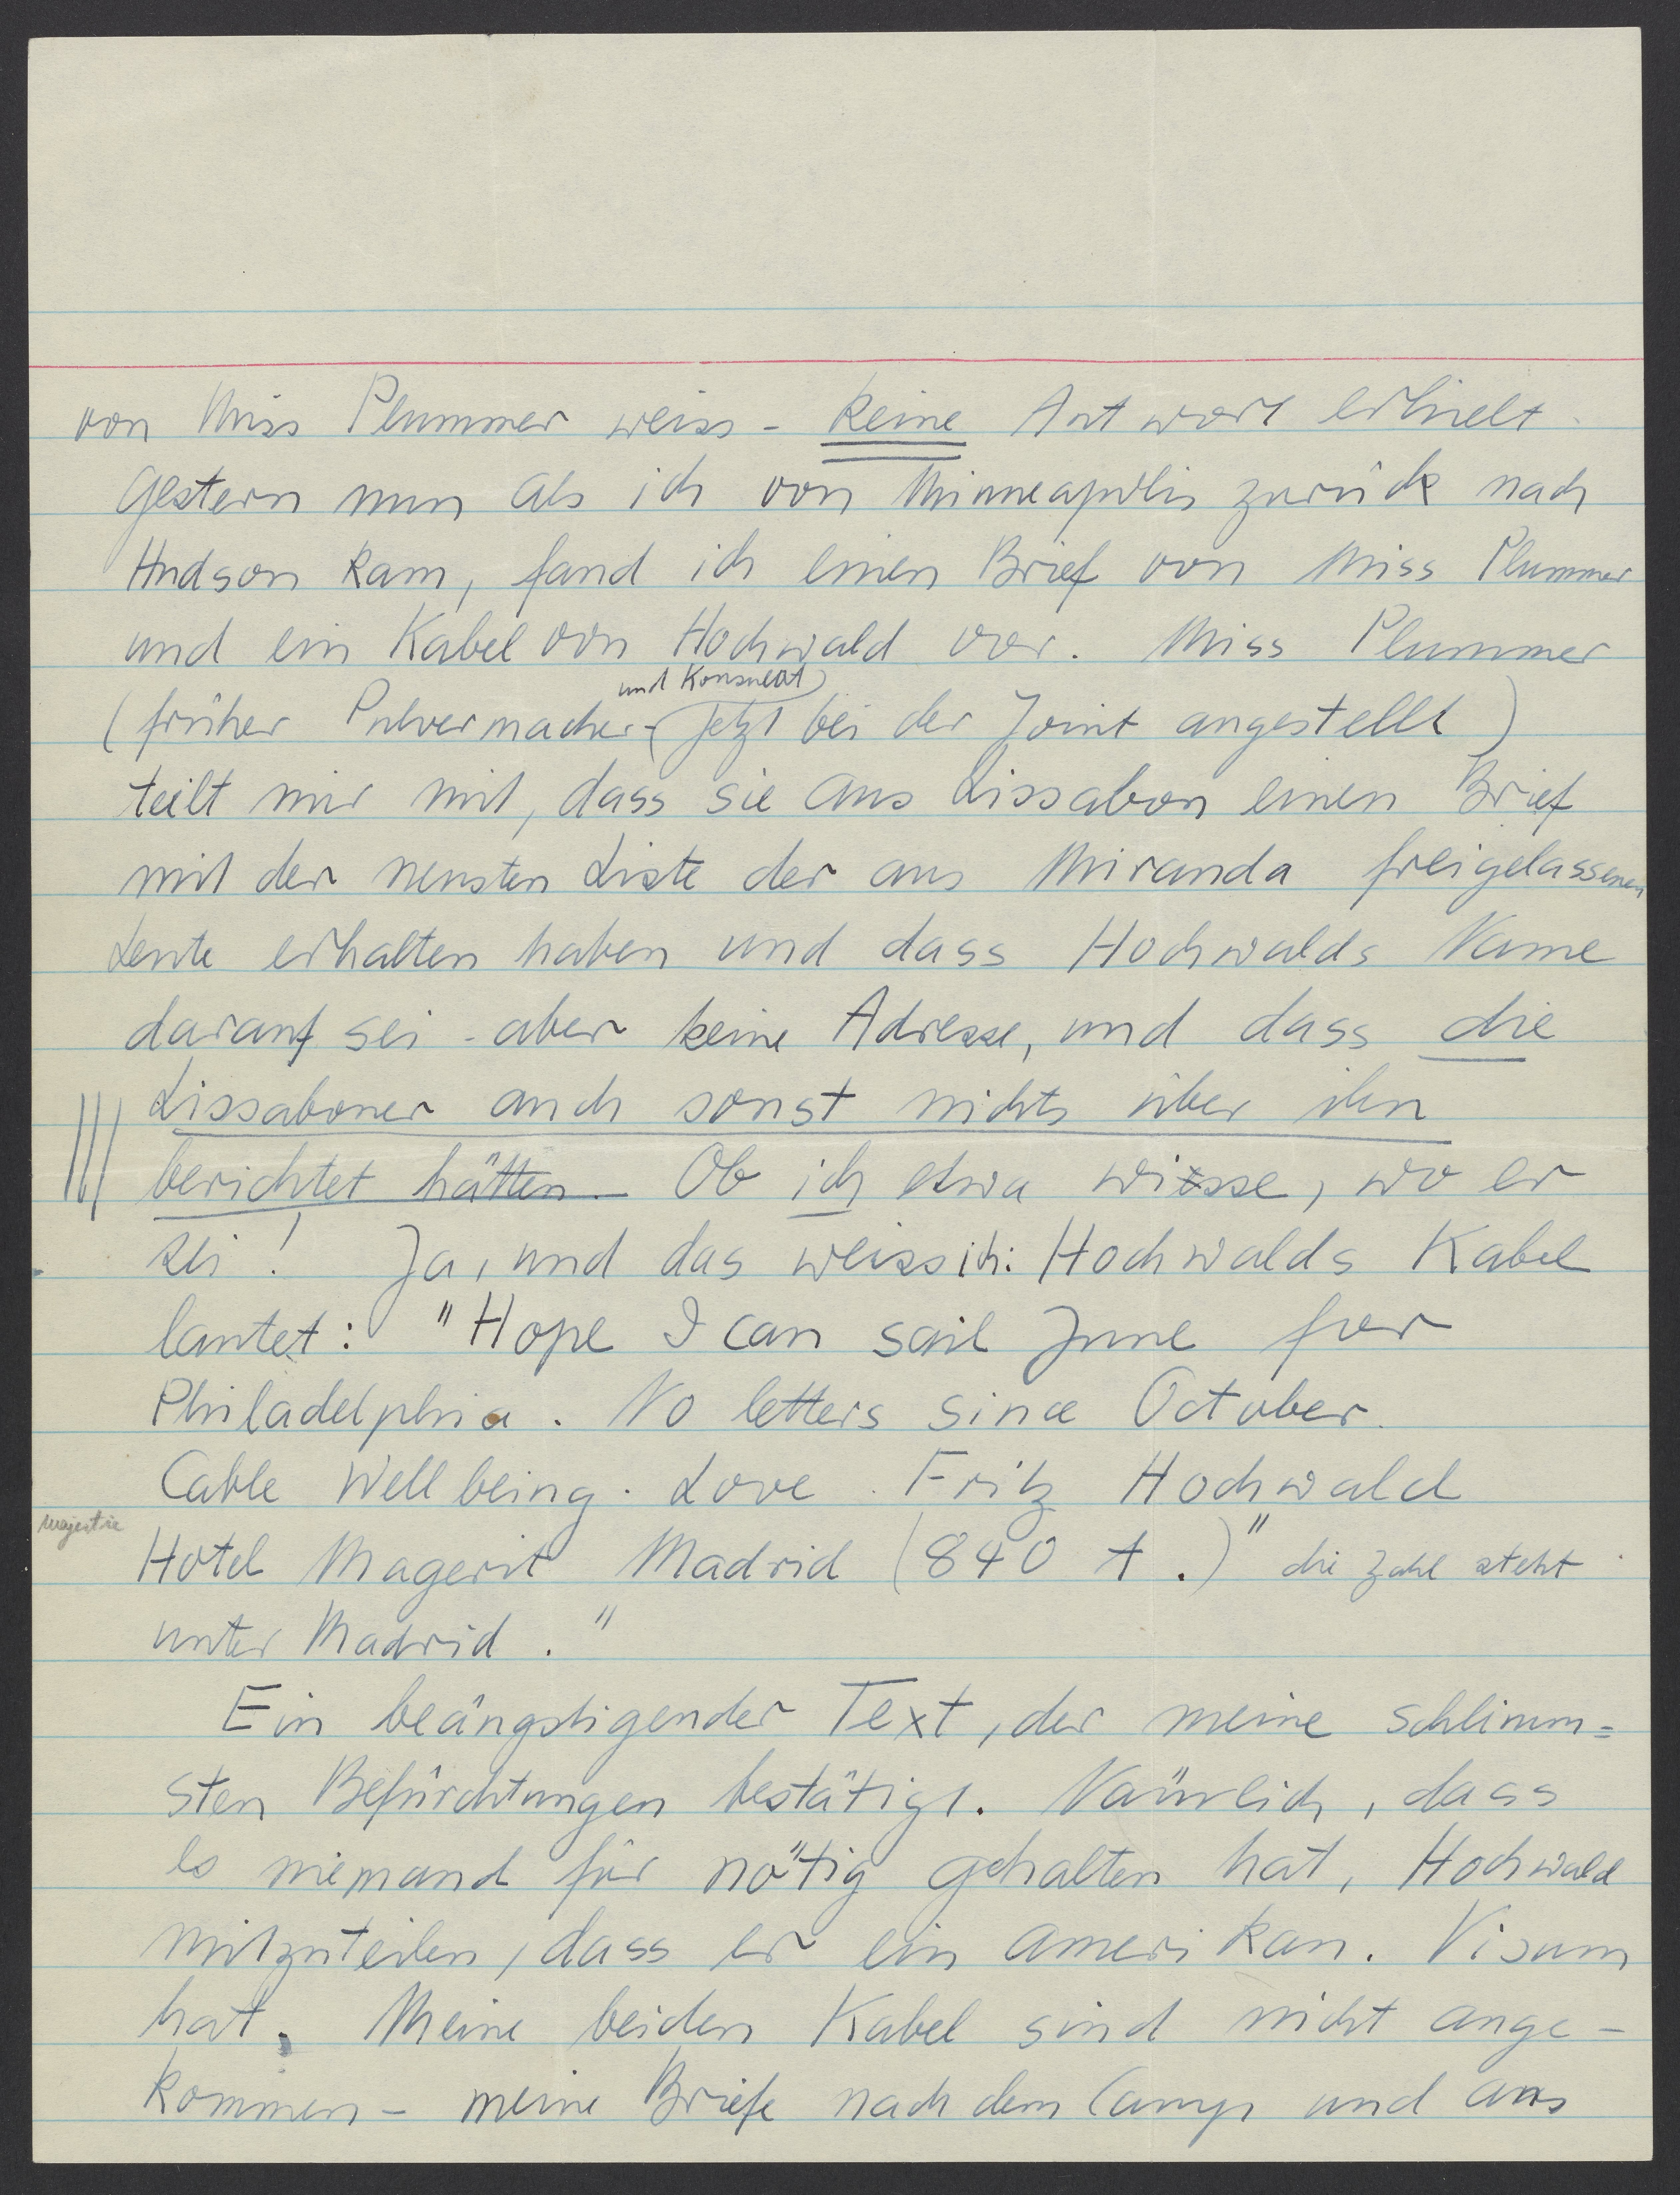 von Miss Plummer weiss - keine Antwort erhielt.
Gestern nun als ich von Minneapolis zurück nach
Hudson kam, fand ich einen Brief von Miss Plummer
und ein Kabel von Hochwald vor. Miss Plummer
und Konsulat
(früher Pulvermacher - jetzt bei der Joint angestellt)
teilt mir mit, dass sie aus Lissabon einen Brief
mit der neusten Liste der aus Miranda freigelassenen
Leute erhalten haben und dass Hochwalds Name
darauf sei - aber keine Adresse, und dass die
Lissaboner auch sonst nichts über ihn
berichtet hätten. Ob ich etwa wisse, wo er
sei! Ja, und das weiss ich: Hochwalds Kabel
lautet: "Hope I can sail June for
Philadelphia. No letters since October.
Cable Wellbeing. Love. Fritz Hochwald
Majestic
Hotel Magerit Madrid (840 t.)" die Zahl steht
unter Madrid."
Ein beängstigender Text, der meine schlimm=
sten Befürchtungen bestätigt. Nämlich, dass
es niemand für nötig gehalten hat, Hochwald
mitzuteilen, dass er ein amerikan. Visum
hat. Meine beiden Kabel sind nicht ange-
kommen - meine Briefe nach dem Camp und ans